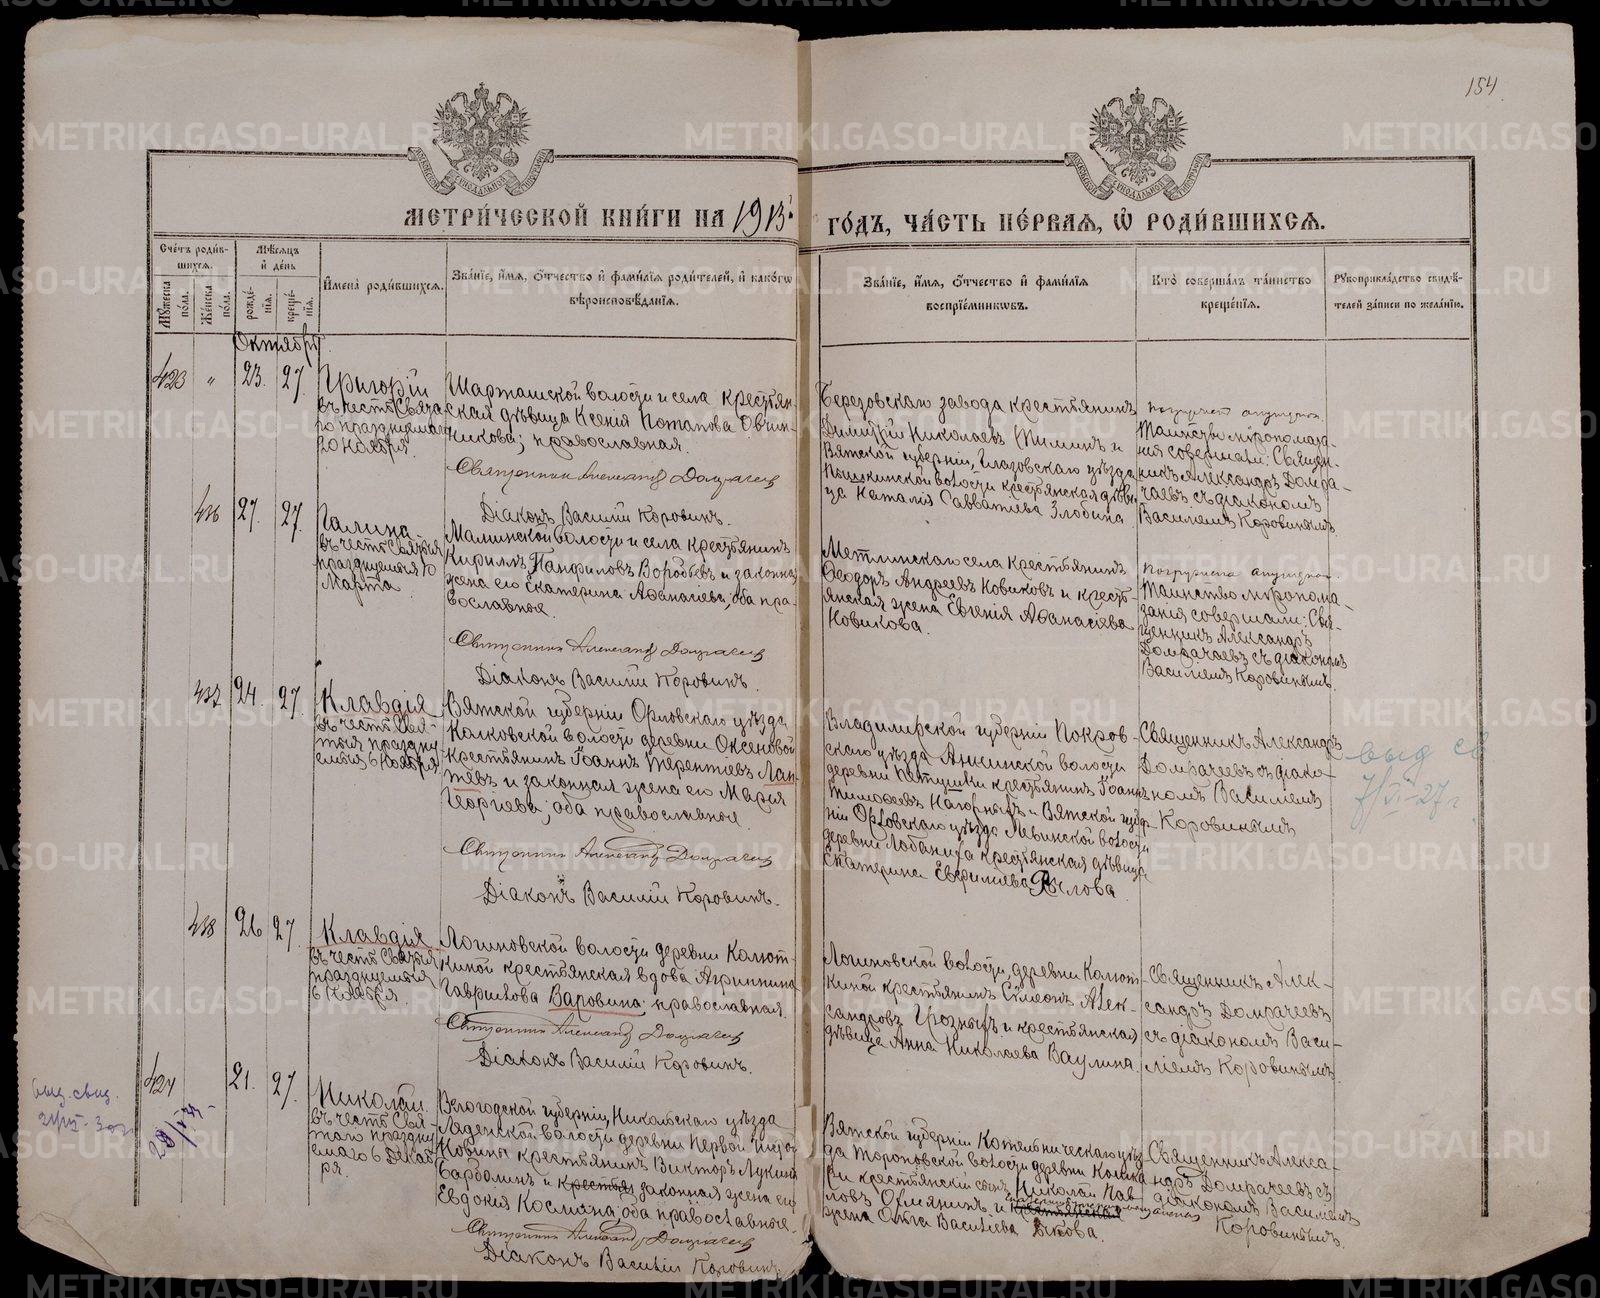 154
МЕТРИ́ЧЕСКОЙ КНИ́ГИ НА 1913
ГО́ДЪ, ЧА́СТЬ ПЕ́РВАЯ, Ѡ РОДИ́ВШИХСЯ.
Счетъ роди́в-
шихся.
Мꙋжеска по́ла.
Же́нска по́ла.
Мѣсяцъ
и де́нь
рожде́нїя.
креще́нїя.
Имена̀ роди́вшихся.
Зва́нїе, и́мя, ѻ́тчество и фами́лїя роди́телей, и како́гѡ
вѣроисповѣ́данїя.
Зва́нїе, и́мя, ѻ́тчество и фами́лїя
воспрїе́мникѡвъ.
Кто̀ соверша́лъ та́инство
креще́нїя.
Рꙋкоприкла́дство свидѣ́-
телей за́писи по жела́нїю.
Октябрь
423 " 23. 27.
Григорій
въ честь Свята-
го празднуемаго
20 Ноября.
Шарташской волости и села крестьян-
ская дѣвица Ксенія Потапова Овчин-
никова; православная.
Священникъ Александръ Домрачевъ
Діаконъ Василій Коровинъ.
Березовскаго завода крестьянинъ
Димитрій Николаевъ и
Вятской губерніи, Глазовскаго уѣзда
волости крестьянская дѣви-
ца Наталія Савватіева Злобина
Таинство мѵропомаза-
нія совершали: Священ-
никъ Александръ Домра-
чевъ съ діакономъ
Василіемъ Коровинымъ
436 27. 27.
Галина
въ честь Святыя
празднуемыя 10
Марта.
Малинской волости и села крестьянинъ
Кириллъ Панфиловъ Воробьевъ и законная
жена его Екатерина Аѳанасіева; оба пра-
вославные.
Священникъ Александръ Домрачевъ
Діаконъ Василій Коровинъ.
Метлинскаго села крестьянинъ
Ѳеодоръ Андреевъ Новиковъ и кресть-
янская жена Евгенія Аѳанасіева
Новикова.
Таинство мѵропома-
занія совершали: Свя-
щенникъ Александръ
Домрачевъ съ діакономъ
Василіемъ Коровинымъ.
437 24. 27.
Клавдія
въ честь Свя-
тыя праздну-
емыя 6 Ноября
Вятской губерніи Орловскаго уѣзда
волости деревни Оксеновой
крестьянинъ Іоаннъ Терентіевъ Лап-
тевъ и законная жена его Марія
Георгіева; оба православные.
Священникъ Александръ Домрачевъ
Діаконъ Василій Коровинъ.
Владимірской губерніи Покров-
скаго уѣзда Аннинской волости
деревни Петушки крестьянинъ Іоаннъ
Тимоѳеевъ Нагорныхъ и Вятской губер-
ніи Орловскаго уѣзда Левинской волости
деревни крестьянская дѣвица
Екатерина Рылова
Священникъ Александръ
Домрачевъ съ діако-
номъ Василіемъ
Коровинымъ
выд св
7/VI-27 г
438 26 27.
Клавдія
въ честь Святыя
празднуемыя
6 Ноября
Логиновской волости деревни Калют-
киной крестьянская вдова Агриппина
Гаврилова Варовина; православная.
Священникъ Александръ Домрачевъ
Діаконъ Василій Коровинъ.
Логиновской волости, деревни Калют-
киной крестьянинъ Сѵмеонъ Алек-
сандровъ Грозныхъ и крестьянская
дѣвица Анна Николаева Ваулина.
Священникъ Алек-
сандръ Домрачевъ
съ діакономъ Васи-
ліемъ Коровинымъ.
424 21. 27.
Николай
въ честь Свя-
таго праздну-
емаго 6 Декаб-
ря.
Вологодской губерніи, Никольскаго уѣзда
волости деревни Первой
крестьянинъ Викторъ Лукинъ
и законная жена его
Евдокія Космина; оба православные.
Священникъ Александръ Домрачевъ
Діаконъ Василій Коровинъ
Вятской губерніи Котельническаго уѣз-
да Тороповской волости деревни
крестьянскій сынъ Николай Пав-
ловъ и
жена Ольга Василіева Быкова.
Священникъ Алекса-
ндръ Домрачевъ съ
діакономъ Василіемъ
Коровинымъ.
METRIKI.GASO-URAL.RU